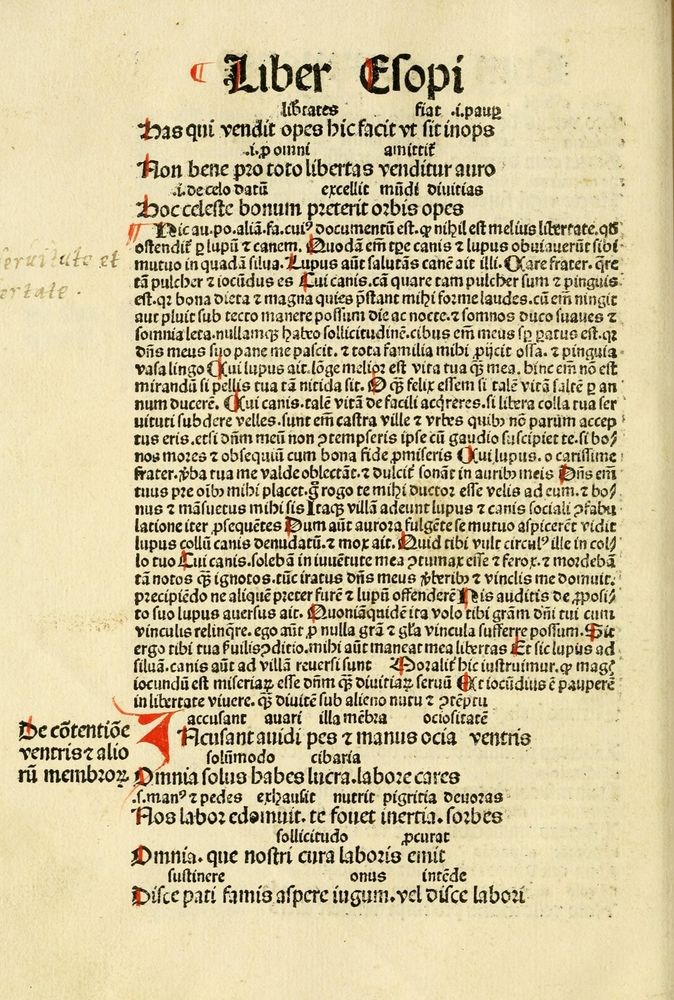 ¶ Liber Esopi
lib̄tates fiat .i.paup̲
Has qui vendit opes hic facit vt sit inops
.i.ꝓ omni amittit̃
Non bene pro toto libertas venditur auro
.i.de celo datū excellit mūdi diuitias
Hoc celeste bonum preterit orbis opes
¶ Hic au.po.aliā.fa.cuiꝰ documentū est.ꝙ nihil est melius libertate.qd̄
ostendit̃ ꝑ lupū ⁊ canem. Quodā em̄ tp̄e canis ⁊ lupus obuiauerūt sibi
mutuo in quadā silua. Lupus aūt salutās canē ait illi. Care frater. q̄re
tā pulcher ⁊ iocūdus es Cui canis. cā quare tam pulcher sum ⁊ pinguis
est.qꝛ bona dieta ⁊ magna quies p̄stant mihi forme laudes. cū em̄ ningit
aut pluit sub tecto manere possum die ac nocte. ⁊ somnos duco suaues ⁊
somnia leta. nullamqꝫ habeo sollicitudinē. cibus em̄ meus sp̄ ꝑatus est.qꝛ
dn̄s meus suo pane me pascit. ⁊ tota familia mihi ꝓijcit ossa. ⁊ pinguia
vasa lingo Cui lupus ait. lōge melior est vita tua qꝫ mea. hinc em̄ nō est
mirandū si pellis tua tā nitida sit. O qꝫ felix essem si talē vitā saltē ꝑ an
num ducerē. Cui canis. talē vitā de facili acq̄reres. si libera colla tua ser
uituti subdere velles. sunt em̄ castra ville ⁊ vrbes quibꝰ nō parum accep
tus eris. etsi dn̄m meū non ꝯtempseris ipse cū gaudio suscipiet te. si bo⸗
nos mores ⁊ obsequiū cum bona fide ꝓmiseris Cui lupus. o carissime
frater. v̄ba tua me valde oblectāt. ⁊ dulcit̃ sonāt in auribꝰ meis Dn̄s em̄
tuus pre oībꝰ mihi placet. g̊ rogo te mihi ductor esse velis ad eum. ⁊ bo⸗
nus ⁊ māsuetus mihi sis Itaqꝫ villā adeunt lupus ⁊ canis sociali ꝯfabu
latione iter ꝓsequētes Dum aūt aurora fulgēte se mutuo aspicerēt vidit
lupus collū canis denudatū. ⁊ mox ait. Quid tibi vult circulꝰ ille in col⸗
lo tuo Cui canis. solebā in iuuētute mea ꝯtumax esse ⁊ ferox. ⁊ mordebā
tā notos qꝫ ignotos. tūc iratus dn̄s meus v̄beribꝰ ⁊ vinclis me domuit.
precipiēdo ne aliquē preter furē ⁊ lupū offenderē His auditis de ꝓposi⸗
to suo lupus auersus ait. Quoniāquidē ita volo tibi grām dn̄i tui cum
vinculis relinq̄re. ego aūt ꝓ nulla grā ⁊ gl̄a vincula sufferre possum. Sit
ergo tibi tua s̄uilis ꝯditio. mihi aūt maneat mea libertas Et sic lupus ad
siluā. canis aūt ad villā reuersi sunt Moralit̃ hic iustruimur. ꝙ magꝭ
iocundū est miseriaꝝ esse dn̄m qꝫ diuitiaꝝ seruū Et iocūdius ē pauperē
in libertate viuere. qꝫ diuitē sub alieno nutu ⁊ ꝯtēptu
seruitute et
ertate.
De cōtentiōe
ventris ⁊ alio
rū membroꝝ
accusant auari illa mēbra ociositatē
Accusant auidi pes ⁊ manus ocia ventris
solūmodo cibaria
Omnia solus habes lucra. labore cares
.s.manꝰ ⁊ pedes exhausit nutrit pigritia deuoras
Nos labor edomuit. te fouet inertia. sorbes
sollicitudo ꝓcurat
Omnia. que nostri cura laboris emit
sustinere onus intēde
Disce pati famis aspere iugum. vel disce labori